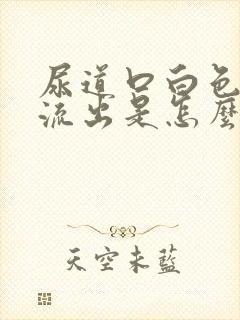 尿道口白色
流出是怎麼
天空未藍